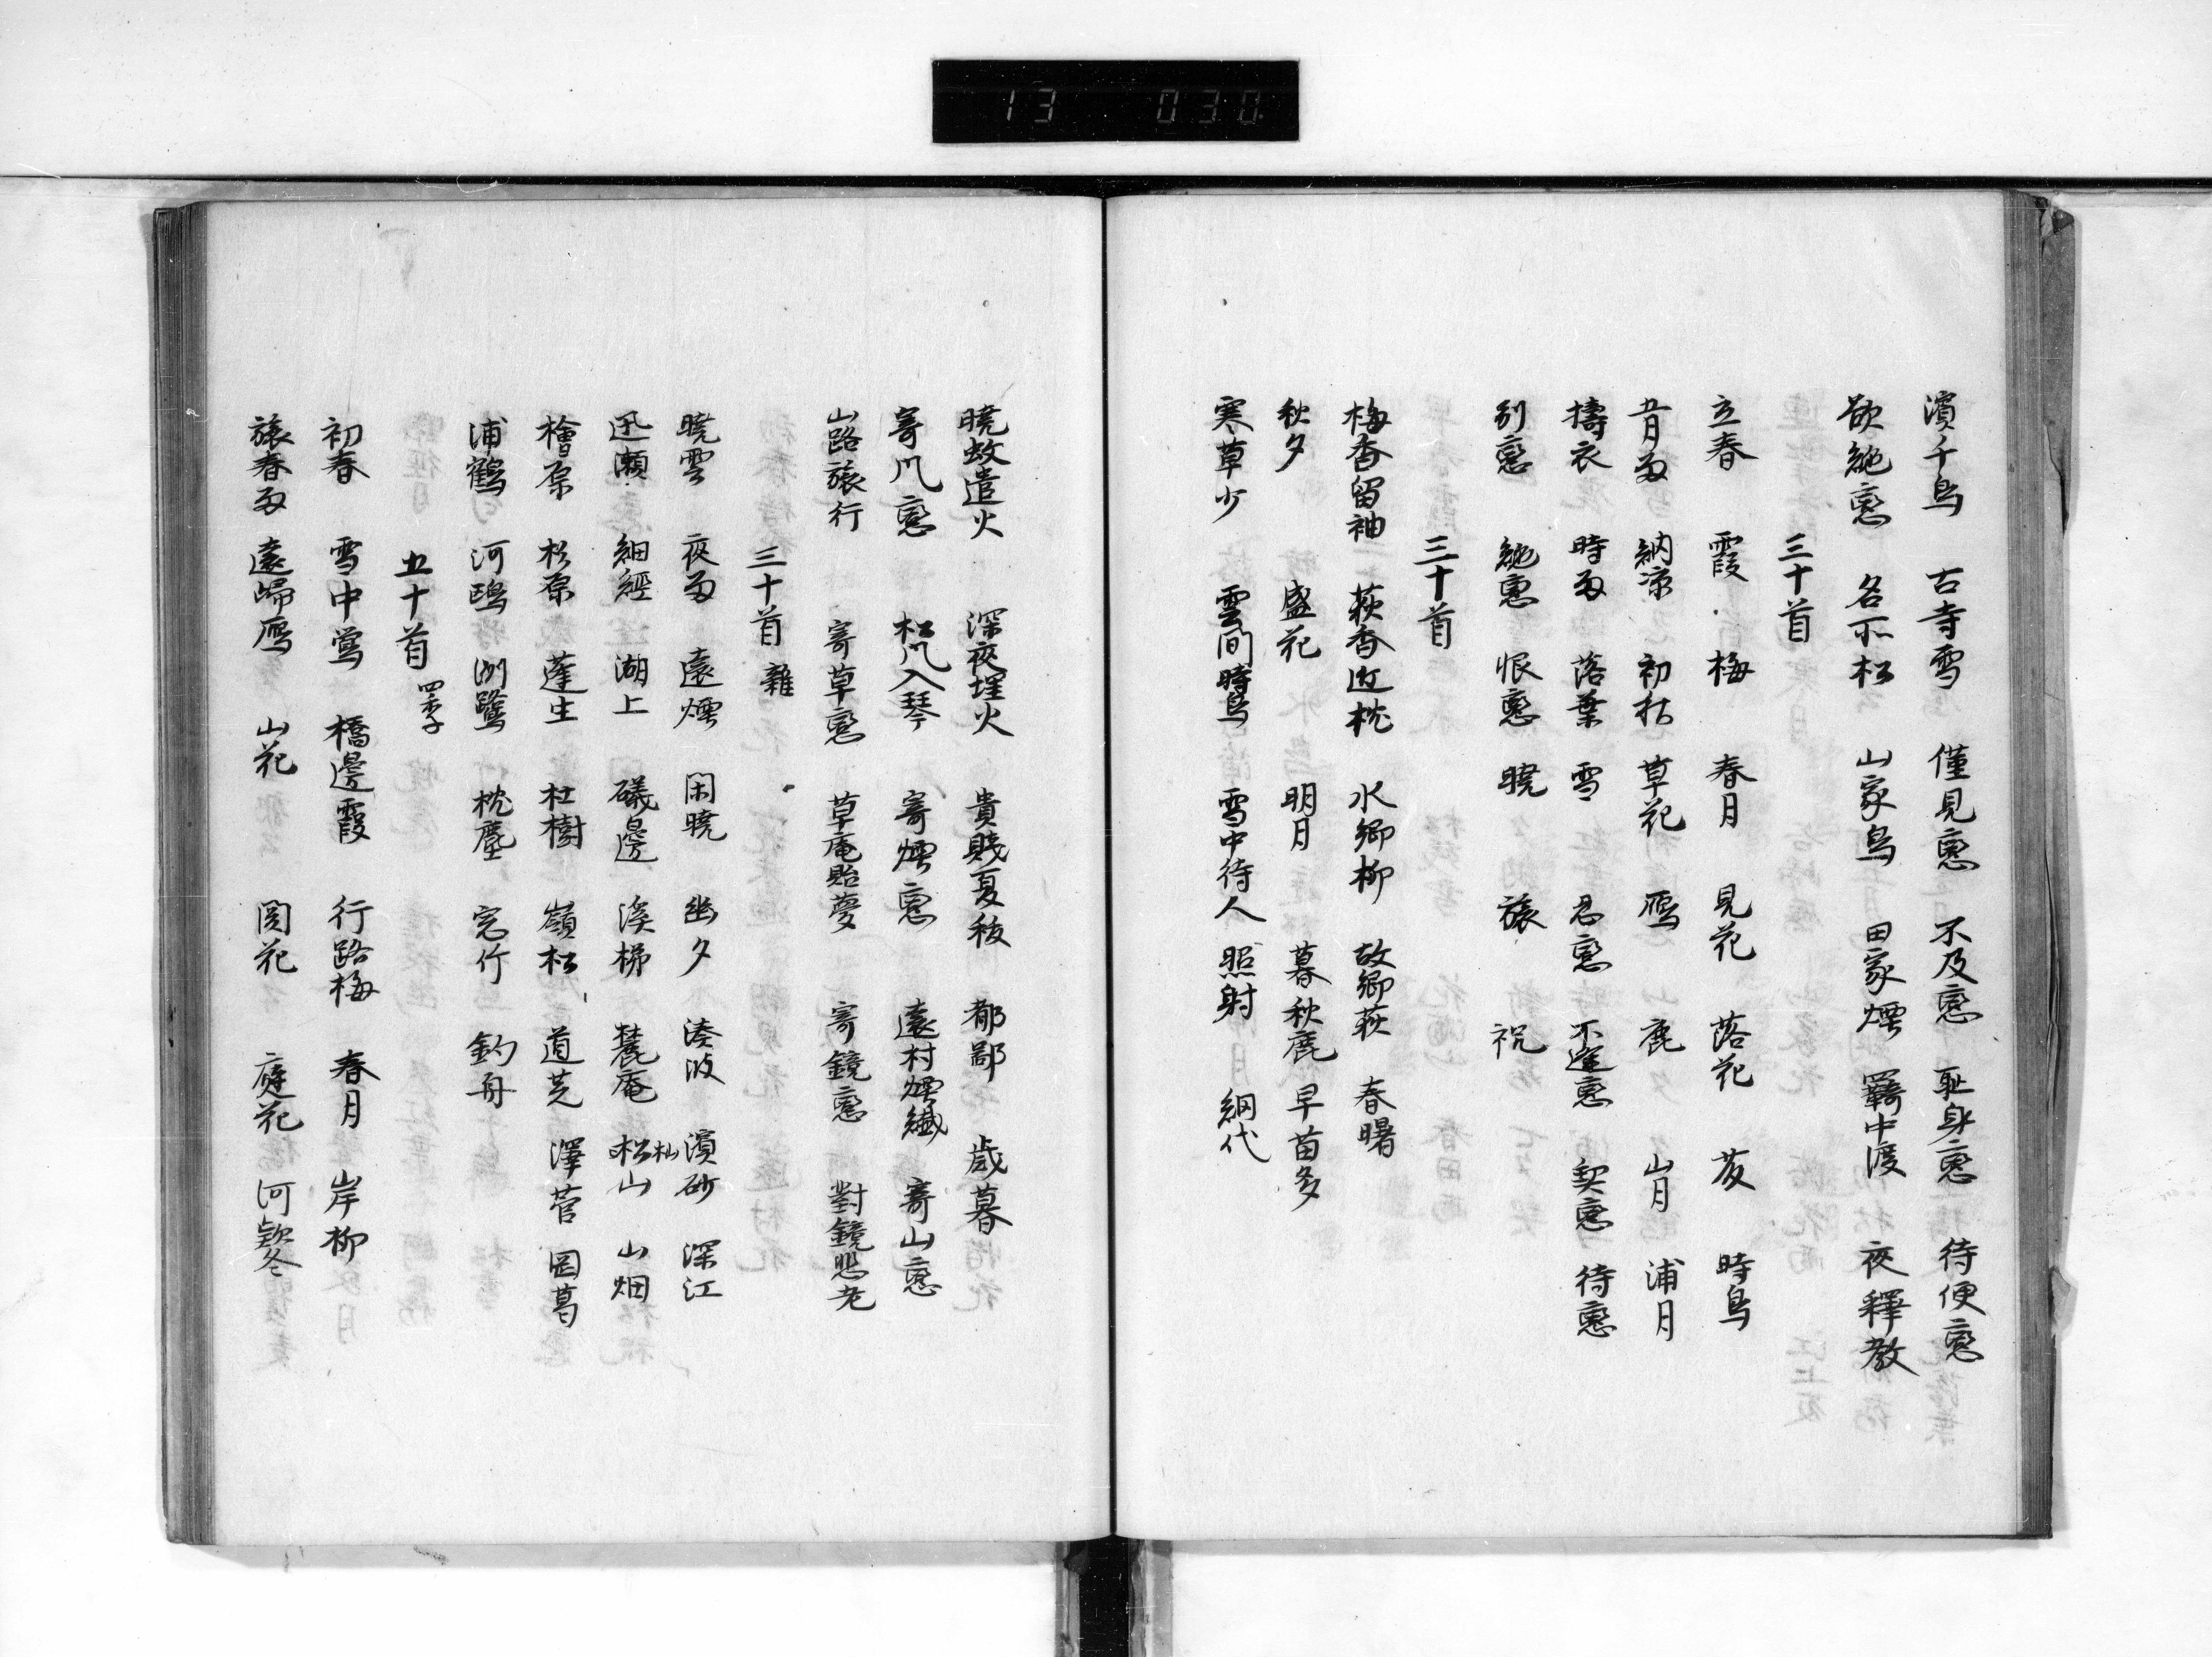 13 030
濱千鳥 古寺雪 僅見戀 不及戀 恥身戀 待便戀
欲絶戀 名所松 山家鳥 田家煙 羇中渡 夜釋教
三十首
立春 霞 梅 春月 見花 落花 夏 時鳥
昔雨 納凉 初秋 草花 鴈 鹿 山月 浦月
擣衣 時雨 落葉 雪 忍戀 不逢戀 契戀 待戀
別戀 絶戀 恨戀 曉 旅 祝
三十首
梅香留袖 萩香近枕 水郷柳 故郷萩 春曙
秋夕 盛花 明月 暮秋鹿 早苗多
寒草少 雲間時鳥 雪中待人 照射 網代
曉蚊遣火 深夜埋火 貴賤夏祓 都鄙 歳暮
寄風戀 松風入琴 寄煙戀 遠村煙纎 寄山戀
山路旅行 寄草戀 草庵貽夢 寄鏡戀 對鏡悲老
三十首 雜
曉雲 夜雨 遠煙 閑曉 幽夕 湊波 濱砂 深江
迅瀬 細經 湖上 礒邊 溪梯 麓庵 松山 杣 山畑
檜原 松原 蓬生 杜樹 嶺松 道芝 澤菅 岡葛
浦鶴 河鴎 洲鷺 枕塵 窓竹 釣舟
五十首 四季
初春 雪中鶯 橋邊霞 行路梅 春月 岸柳
旅春雨 遠歸鴈 山花 関花 庭花 河欵冬